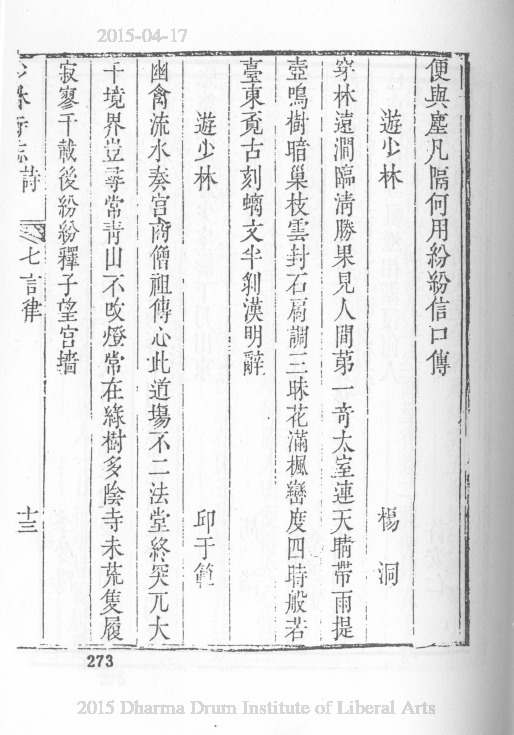 2015-04-17
便與塵凡隔何用紛紛信口傳
遊少林 楊洞
穿林遠澗臨清勝果見人間第一奇太室連天晴帶雨提
壺鳴樹暗巢枝雲封石扇調三昧花滿楓巒度四時般若
臺東覓古刻螭文半剝漢明辭
遊少林 邱于範
幽禽流水奏宮商僧祖傳心此道場不二法堂終突兀大
千境界豈尋常青山不改燈常在綠樹多陰寺未荒隻履
寂寥千載後紛紛釋子望宮墻
少林寺志 詩 七言律 十三
273
2015 Dharma Drum Institute of Liberal Arts